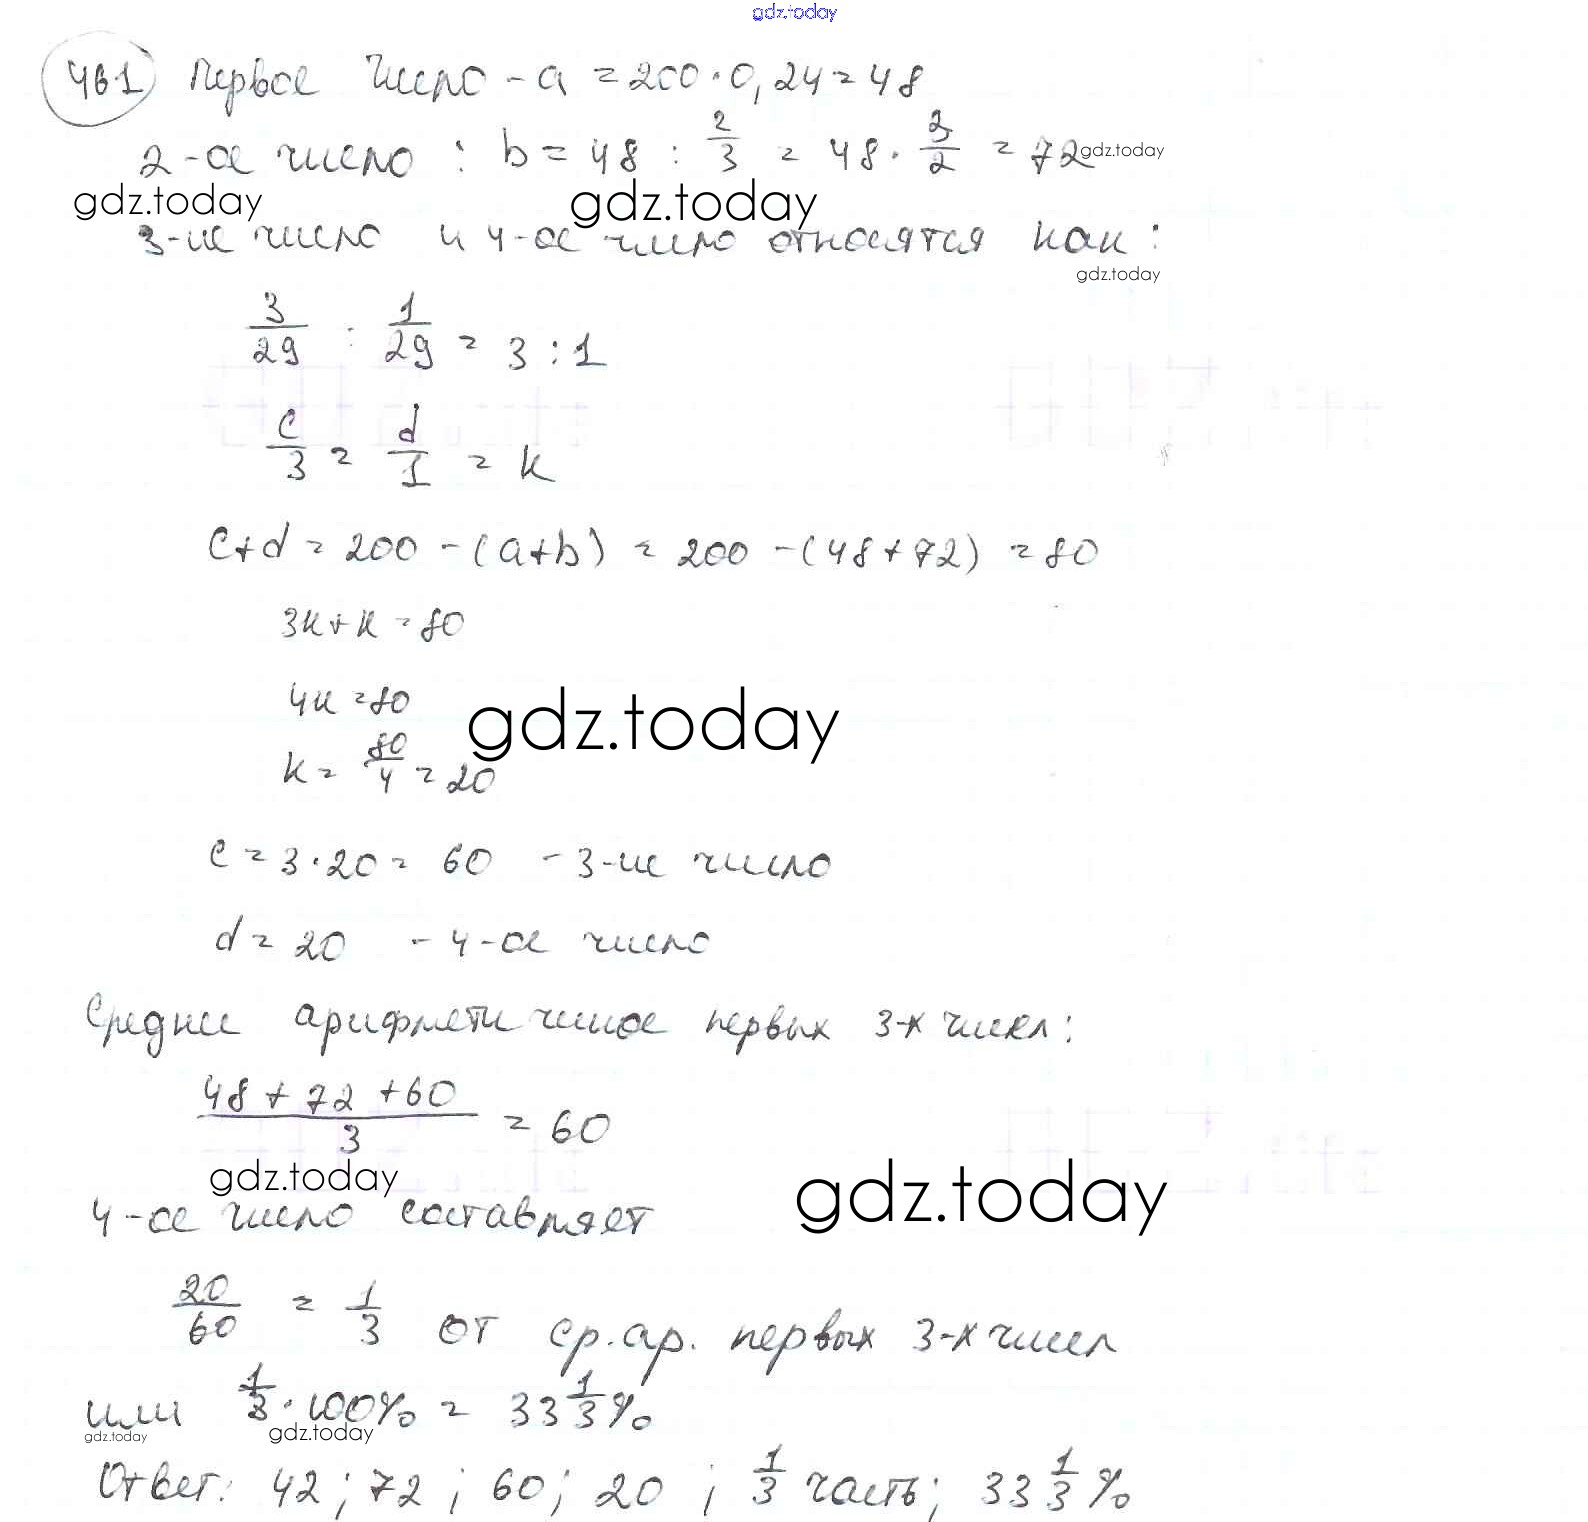 gdz.today
461 Первое число - a = 200 · 0,24 = 48
2-ое число : b = 48 : 2/3 = 48 · 3/2 = 72 gdz.today
gdz.today gdz.today
3-ие число и 4-ое число относятся как :
gdz.today
3/29 : 1/29 = 3 : 1
c/3 = d/1 = k
c+d = 200 - (a+b) = 200 - (48+72) = 80
3k+k = 80
4k = 80
gdz.today
k = 80/4 = 20
c = 3 · 20 = 60 - 3-ие число
d = 20 - 4-ое число
Среднее арифметическое первых 3-х чисел:
(48 + 72 + 60)/3 = 60
gdz.today gdz.today
4-ое число составляет
20/60 = 1/3 от ср. ар. первых 3-х чисел
или 1/3 · 100% = 33 1/3 %
gdz.today gdz.today
Ответ: 42 ; 72 ; 60; 20 ; 1/3 часть; 33 1/3 %